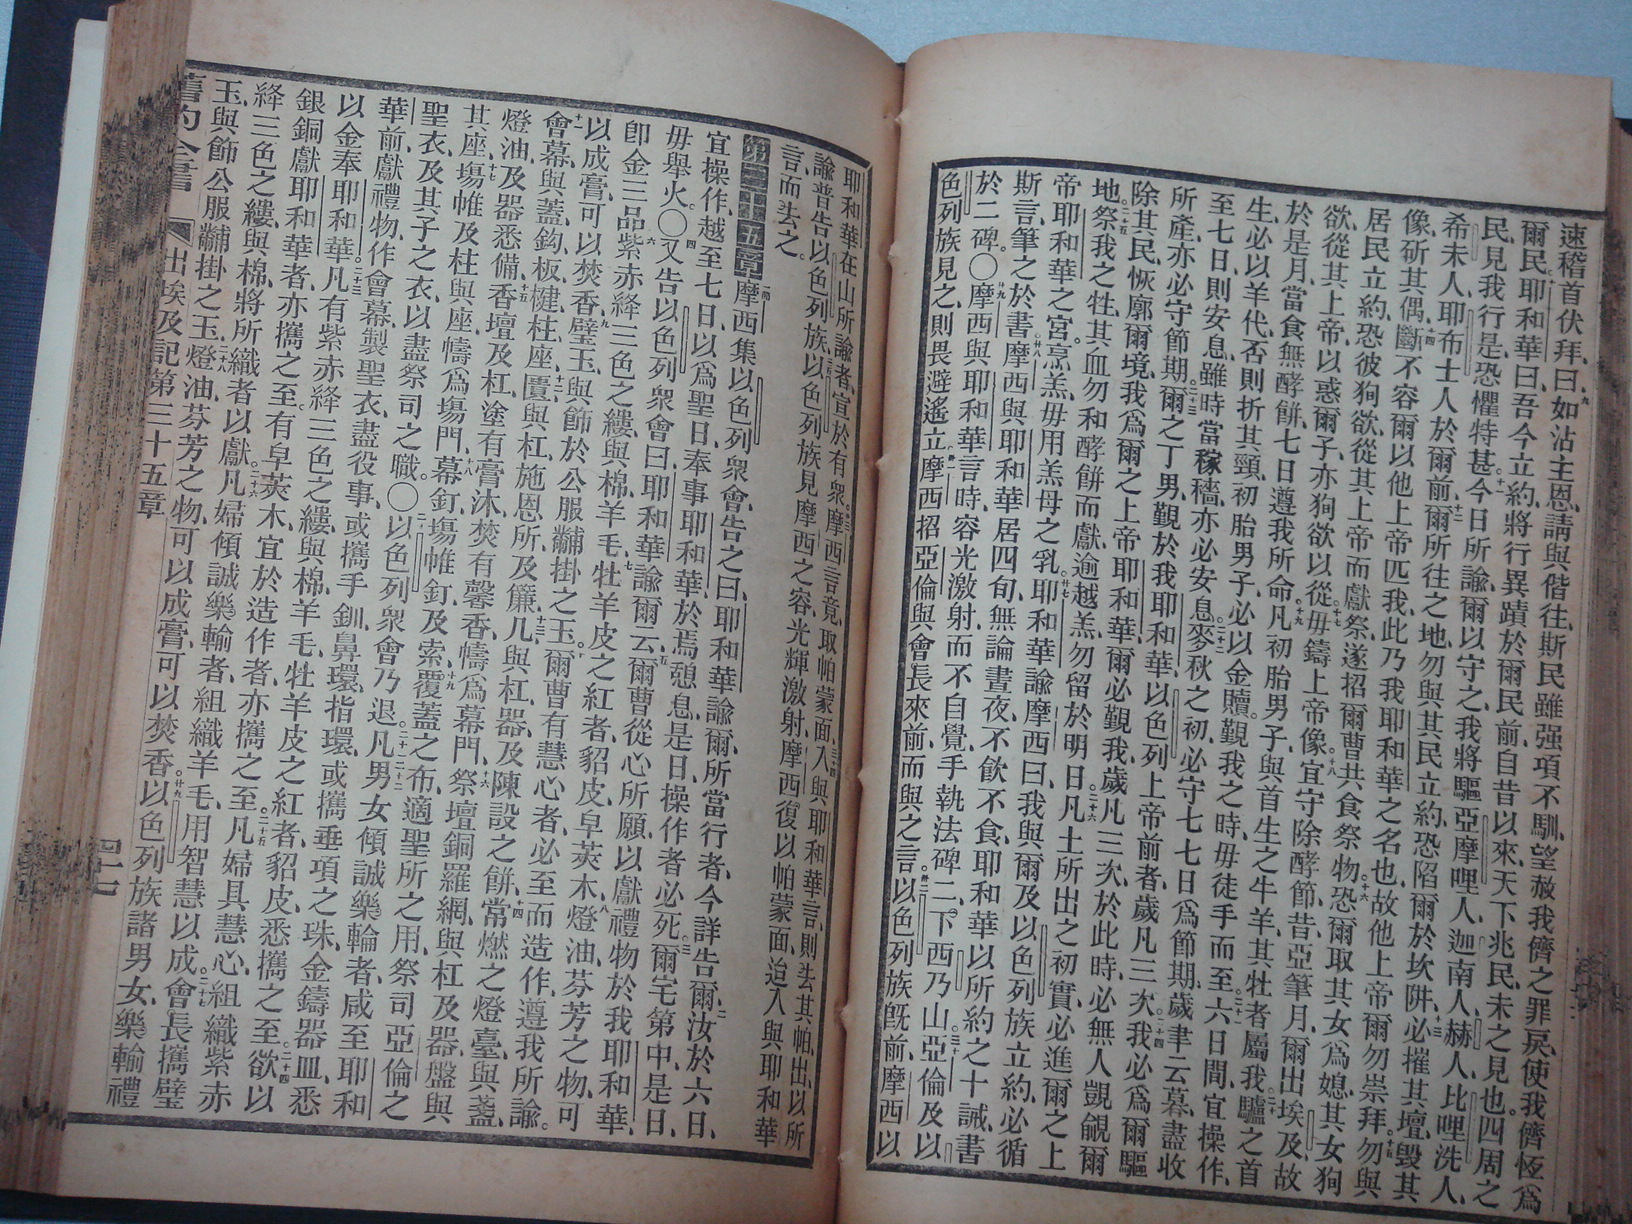 速稽首伏拜、曰、如沾主恩、請與偕往、斯民雖强項不馴、望赦我儕之罪戾、使我儕恆為
爾民。耶和華曰、吾今立約、將行異蹟於爾民前、自昔以來、天下兆民、未之見也、四周之
民、見我行是、恐懼特甚。今日所諭、爾以守之、我將驅亞摩哩人、迦南人、赫人、比哩洗人、
希未人、耶布士人於爾前、爾所往之地、勿與其民立約、恐陷爾於坎阱、必摧其壇、毀其
像、斫其偶、斷不容爾以他上帝匹我、此乃我耶和華之名也、故他上帝爾勿崇拜。勿與
居民立約、恐彼狥欲、從其上帝而獻祭、遂招爾曹共食祭物、恐爾取其女為媳、其女狥
欲、從其上帝、以惑爾子、亦狥欲以從。毋鑄上帝像。宜守除酵節、昔亞筆月、爾出埃及、故
於是月、當食無酵餅、七日遵我所命。凡初胎男子、與首生之牛羊、其牡者屬我、驢之首
生、必以羊代、否則折其頸、初胎男子、必以金贖。覲我之時、毋徒手而至。六日間、宜操作、
至七日、則安息、雖時當稼穡、亦必安息。麥秋之初、必守七七日、為節期、歲聿云暮、盡收
所產、亦必守節期。爾之丁男、覲於我耶和華、以色列上帝前者、歲凡三次。我必為爾驅
除其民、恢廓爾境、我為爾之上帝耶和華、爾必覲我、歲凡三次、於此時、必無人覬覦爾
地。祭我之牲、其血勿和酵餅而獻、逾越羔、勿留於明日。凡土所出之初實、必進爾之上
帝耶和華之宮。烹羔、毋用羔母之乳。耶和華諭摩西曰、我與爾及以色列族立約、必循
斯言、筆之於書。摩西與耶和華居四旬、無論晝夜、不飲不食、耶和華以所約之十誡、書
於二碑。〇摩西與耶和華言時、容光激射、而不自覺、手執法碑二、下西乃山。亞倫及以
色列族見之、則畏避遙立。摩西招亞倫與會長來前、而與之言。以色列族旣前、摩西以
耶和華在山所諭者、宣於有衆。摩西言竟、取帕蒙面、入與耶和華言、則去其帕、出、以所
諭普告以色列族。以色列族見摩西之容光輝激射、摩西復以帕蒙面、迨入與耶和華
言、而去之。
第三十五章 摩西集以色列衆會、告之曰、耶和華諭爾、所當行者、今詳告爾。汝於六日、
宜操作、越至七日、以為聖日、奉事耶和華、於焉憩息、是日操作者必死。爾宅第中、是日、
毋舉火。〇又告以色列衆會曰、耶和華諭爾云、爾曹從心所願、以獻禮物於我耶和華、
卽金三品、紫赤絳三色之縷、與棉、羊毛、牡羊皮之紅者、貂皮、皁莢木、燈油、芬芳之物、可
以成膏、可以焚香、璧玉、與飾於公服黼掛之玉。爾曹有慧心者、必至而造作、遵我所諭。
會幕與蓋、鈎、板、楗、柱、座、匱與杠、施恩所、及簾、几與杠、器、及陳設之餅、常燃之燈臺、與盞、
燈油、及器悉備、香壇及杠、塗有膏沐、焚有馨香、幬為幕門、祭壇銅羅網、與杠及器、盤與
其座、場帷及柱與座、幬為場門、幕釘、場帷釘、及索、覆蓋之布、適聖所之用、祭司亞倫之
聖衣、及其子之衣、以盡祭司之職。〇以色列衆會乃退。凡男女傾誠樂輸者、咸至、耶和
華前、獻禮物、作會幕、製聖衣、盡役事、或攜手釧、鼻環、指環、或攜垂項之珠、金鑄器皿、悉
以金奉耶和華。凡有紫赤絳三色之縷、與棉、羊毛、牡羊皮之紅者、貂皮、悉攜之至、欲以
銀銅獻耶和華者、亦攜之至、有皁莢木、宜於造作者、亦攜之至。凡婦具慧心、組織紫赤
絳三色之縷、與棉、將所織者以獻。凡婦傾誠樂輸者、組織羊毛、用智慧以成。會長攜璧
玉、與飾公服黼掛之玉、燈油、芬芳之物、可以成膏、可以焚香。以色列族諸男女、樂輸禮
舊約全書 出埃及記第三十五章